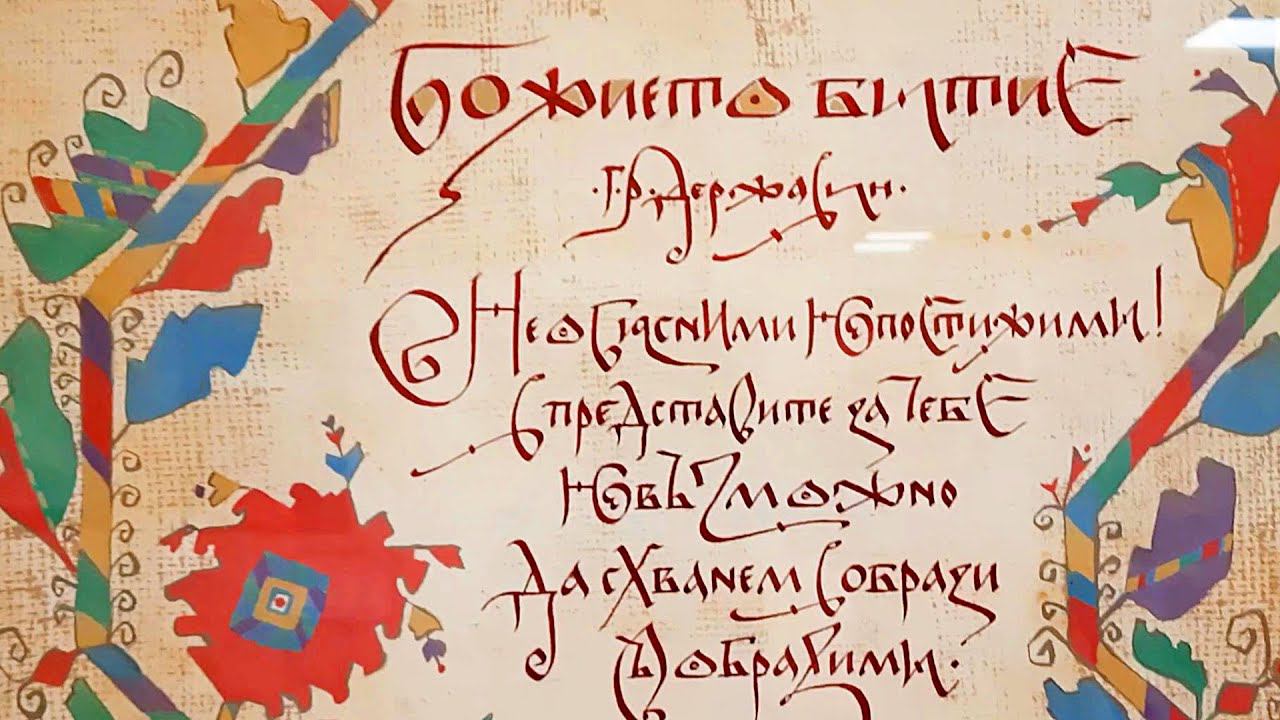 Божието битие
.Г.Р. Державин.
Необясними непостижими!
представите за Тебе
невъзможно
да схванем образи
въобразими.